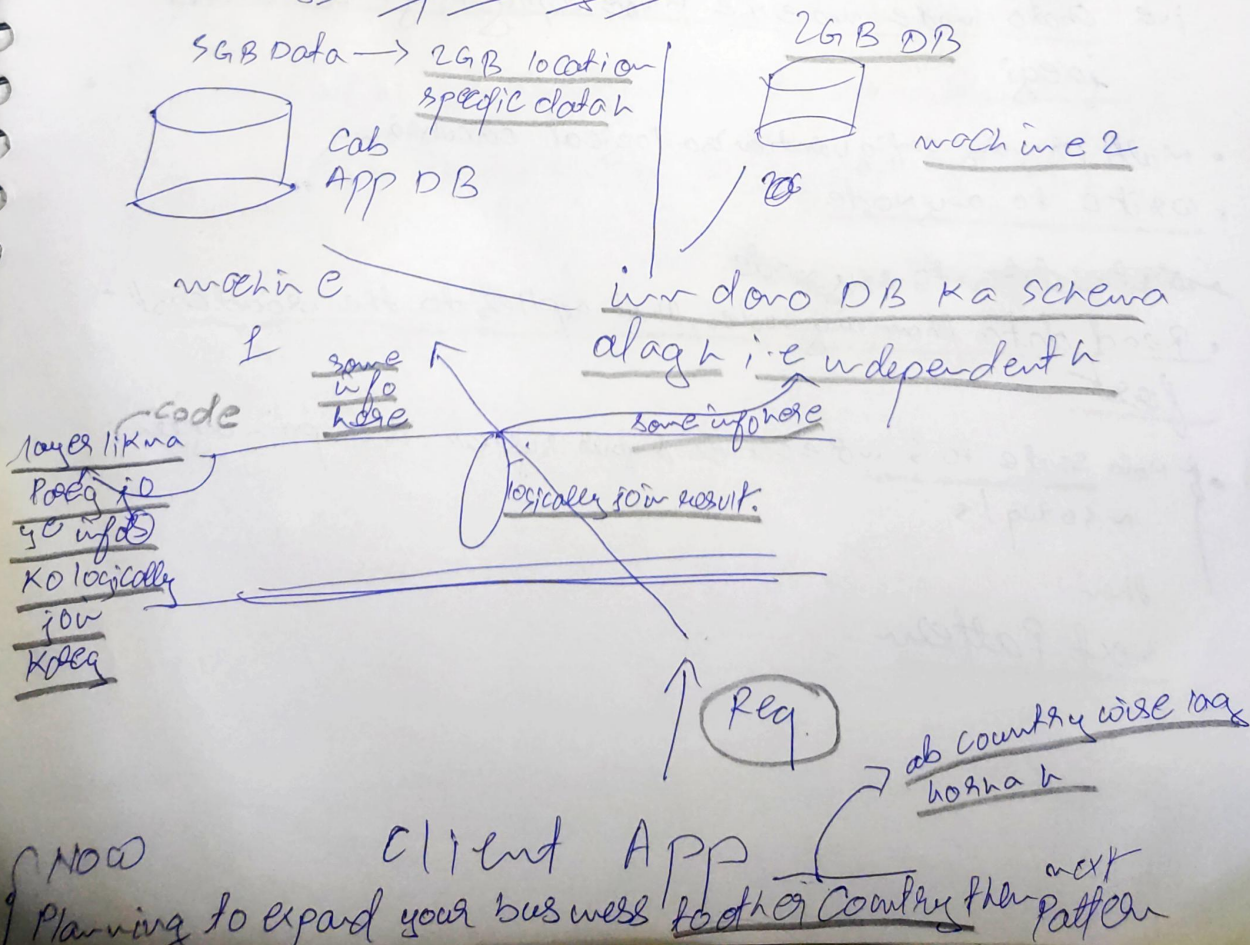 5GB Data → 2GB location
specific data h
Cab
App DB
machine
1
2GB DB
machine 2
inn dono DB ka schema
alag h i.e independent h
some
info
here
some info here
code
layer likhna
Padega jo
ye info
ko logically
join
karega
logically join result.
Req
ab country wise lag
horha h
Client App
Now
Planning to expand your business to other Country then next
Pattern